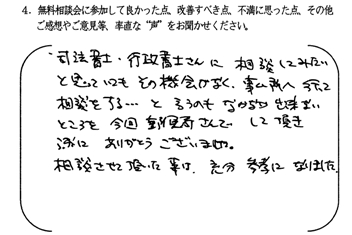 4. 無料相談会に参加して良かった点、改善すべき点、不満に思った点、その他
ご感想やご意見等、率直な“声”をお聞かせください。
司法書士・行政書士さんに 相談してみたい
と思っていても その機会がなく、事ム所へ行って
相談をする…と るうのもなかなか出来ない
ところを 今回 新見寿さんで して頂き
誠に ありがとうございました。
相談させて頂いた事は、充分 参考になりました。